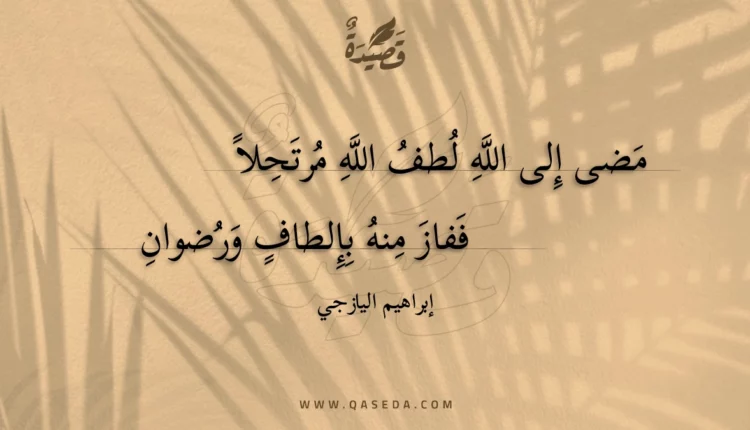 قَصِيْدَةٌ
مَضى إِلى اللَّهِ لُطفُ اللَّهِ مُرتَحِلاً
فَفازَ مِنهُ بِإِلطافٍ وَرُضوانِ
إبراهيم اليازجي
WWW.QASEDA.COM